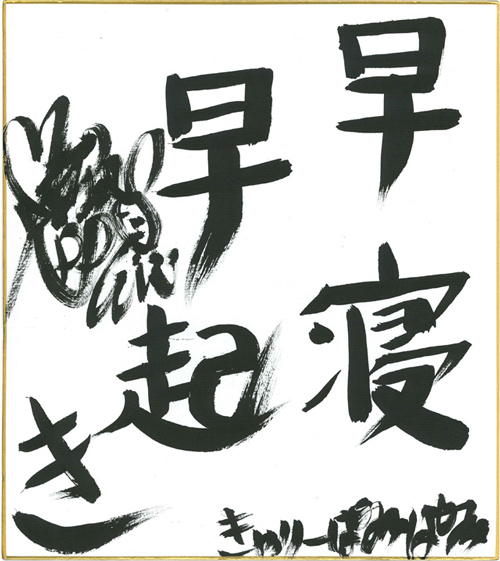 早寝
早起
き
きゃりーぱみゅぱみゅ